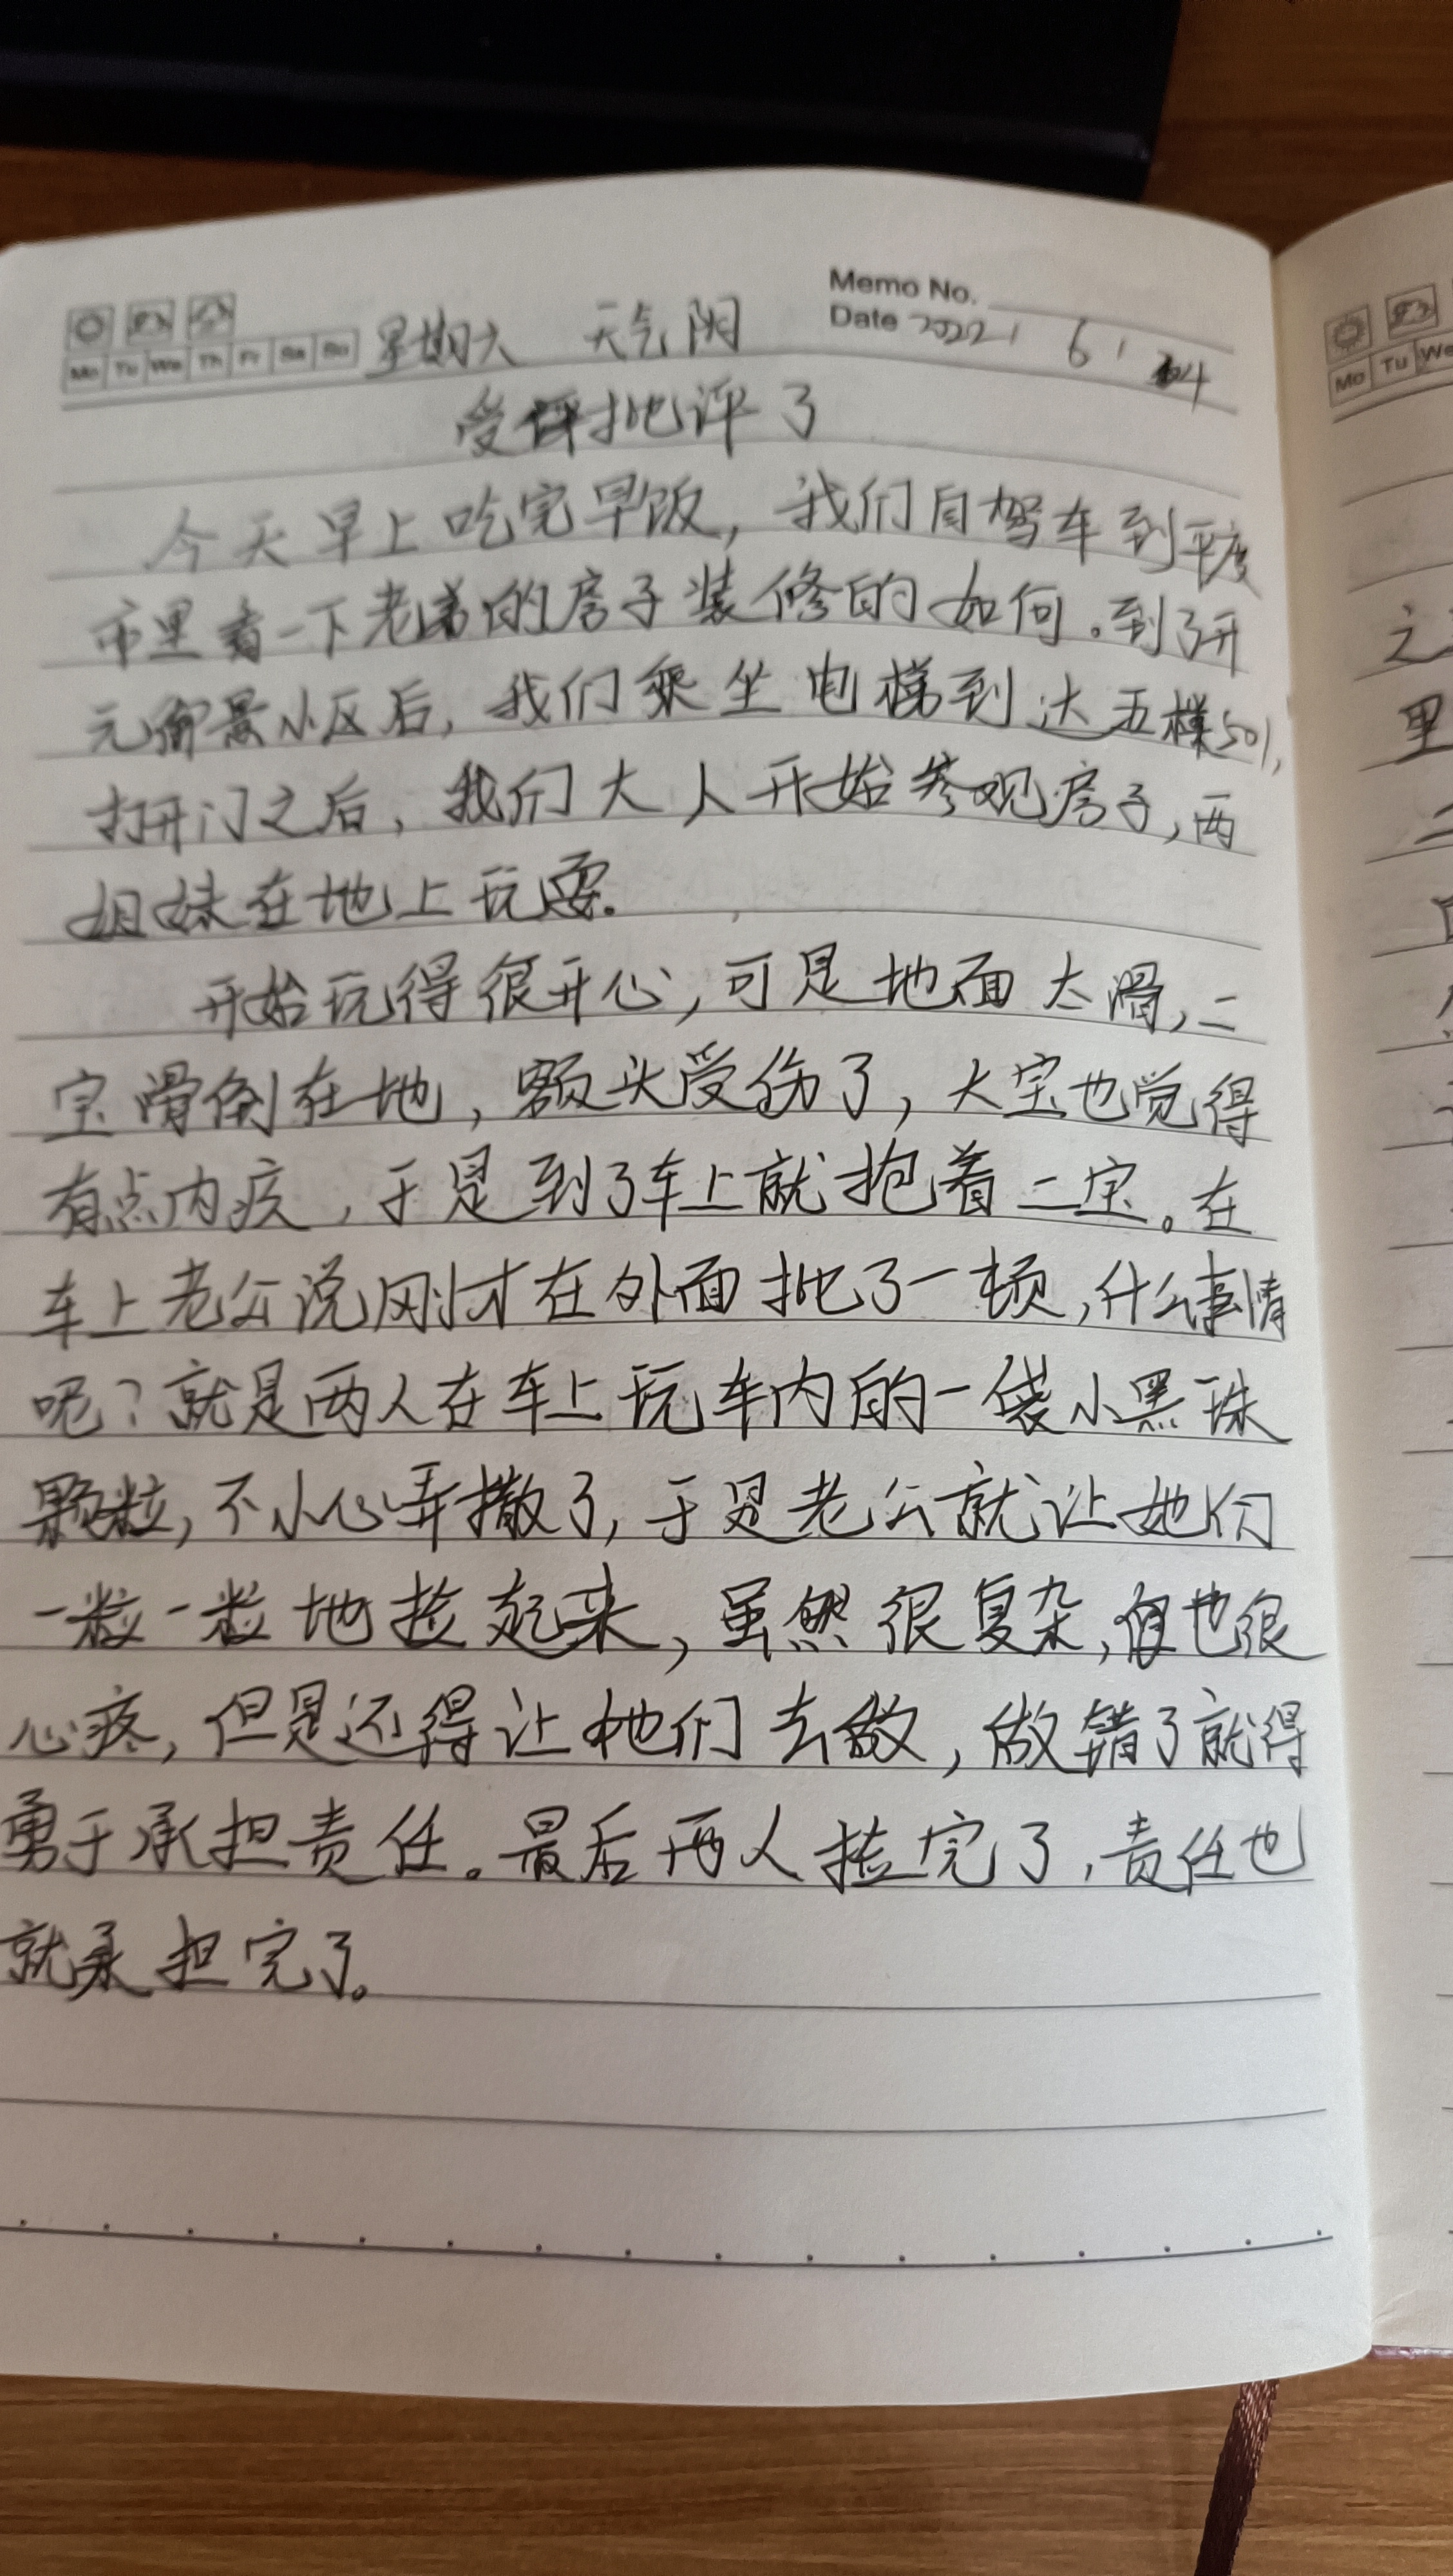 Memo No.
Mo Tu We Th Fr Sa Su 星期六 天气阴 Date 2022 6 4
受批评了
今天早上吃完早饭，我们自驾车到平度
市里看一下老弟的房子装修的如何。到了开
元御景小区后，我们乘坐电梯到达五楼501，
打开门之后，我们大人开始参观房子，两
姐妹在地上玩耍。
开始玩得很开心，可是地面太滑，二
宝滑倒在地，额头受伤了，大宝也觉得
有点内疚，于是到了车上就抱着二宝。在
车上老公说刚才在外面批了一顿，什么事情
呢？就是两人在车上玩车内的一袋小黑珠
颗粒，不小心弄撒了，于是老公就让她们
一粒一粒地捡起来，虽然很复杂，但也很
心疼，但是还得让她们去做，做错了就得
勇于承担责任。最后两人捡完了，责任也
就承担完了。
Mo Tu We
之
里
二